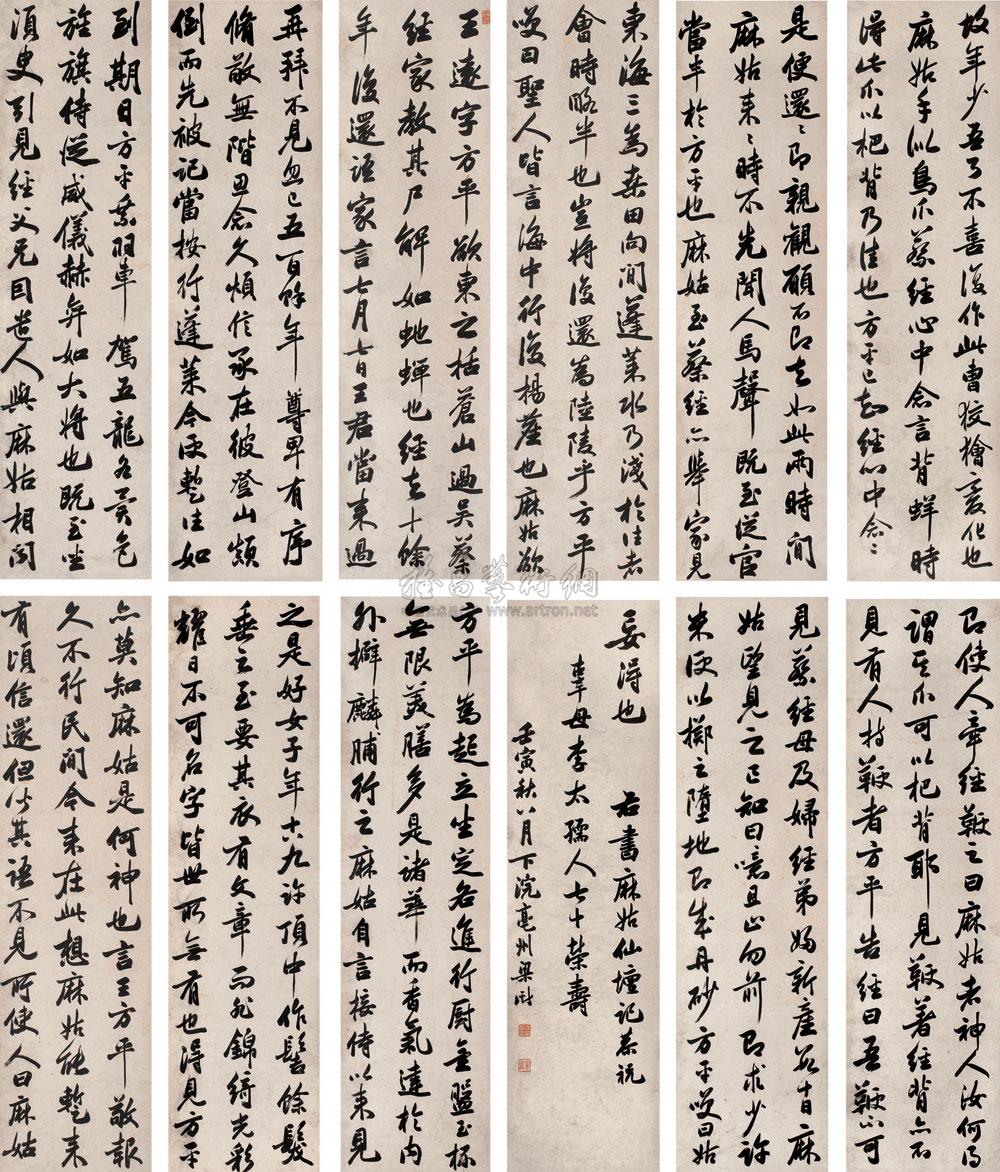 王遠字方平欲東之括蒼山過吳蔡
經家教其尸解如蛇蟬也經去十餘
年後還語家言七月七日王君當來過
到期日方平乘羽車駕五龍各異色
旌旗侍從威儀赫弈如大將也既至坐
須臾引見經父兄因遣人與麻姑相聞
亦莫知麻姑是何神也言王方平敬報
久不行民間今來在此想麻姑能暫來
有頃信還但聞其語不見所使人曰麻姑
再拜不見忽已五百餘年尊卑有序
脩敬無階思念久煩信承在彼登山顛
倒而先被記當按行蓬萊今便暫往如
是便還〻即親觀願不即去如此兩時間
麻姑來〻時不先聞人馬聲既至從官
當半於方平也麻姑至蔡經亦舉家見
之是好女子年十八九許頂中作髻餘髮
垂之至要其衣有文章而非錦綺光彩
耀日不可名字皆世所無有也得見方平
方平為起立坐定各進行廚金盤玉杯
無限美膳多是諸華而香氣達於內
外擗麟脯行之麻姑自言接侍以來見
東海三為桑田向間蓬萊水乃淺於往者
會時略半也豈將復還為陸陵乎方平
笑曰聖人皆言海中行復揚塵也麻姑欲
見蔡經母及婦經弟婦新產數十日麻
姑望見之已知曰噫且止勿前即求少許
米便以擲之墮地即成丹砂方平笑曰姑
故年少吾了不喜復作此曹狡獪變化也
麻姑手似鳥爪蔡經心中念言背蛘時
得此爪以杷背乃佳也方平已知經心中念〻
即使人牽經鞭之曰麻姑者神人汝何得
謂其爪可以杷背耶見鞭著經背亦不
見有人持鞭者方平告經曰吾鞭不可
妄得也　右書麻姑仙壇記恭祝
辜母李太孺人七十榮壽
壬寅秋八月下浣亳州梁巘
雅昌藝術網
www.artron.net